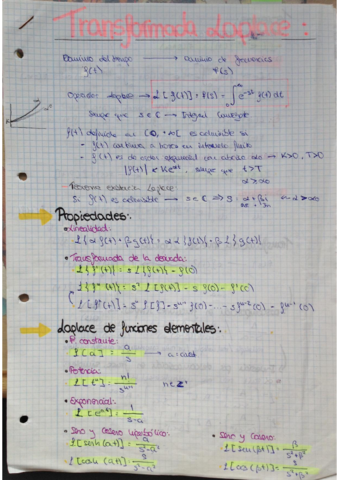 Transformada Laplace:
Dominio del tiempo → Dominio de frecuencias
f(t) F(s)
Operador Laplace → L[f(t)] = F(s) = ∫₀^∞ e^-st f(t) dt
Siempre que s ∈ C → Integral Converge
f(t) definida en [0, +∞[ es si
- f(t) continua a trozos en intervalo finito
- f(t) es de orden exponencial → K>0, T>0
|f(t)| < Ke^αt, siempre que t>T
Teorema existencia Laplace
Si f(t) es → s ∈ C
Propiedades:
• Linealidad:
L{αf(t) + βg(t)} = αL{f(t)} + βL{g(t)}
• Transformada de la derivada:
L{f'(t)} = sL{f(t)} - f(0)
L{f''(t)} = s²L{f(t)} - sf(0) - f'(0)
L[fⁿ(t)] = sⁿ L[f] - sⁿ⁻¹ f(0) - ... - s fⁿ⁻²(0) - fⁿ⁻¹(0)
Laplace de funciones elementales:
• F. constante:
L[a] = a/s →
• Potencia:
L[tⁿ] = n!/sⁿ⁺¹ n ∈ Z⁺
• Exponencial:
L[e^at] = 1/s-a
• Seno y Coseno hiperbólico: • Seno y Coseno:
L[senh(at)] = a/s²-a² L[sen(βt)] = β/s²+β²
L[cosh(at)] = s/s²-a² L[cos(βt)] = s/s²+β²